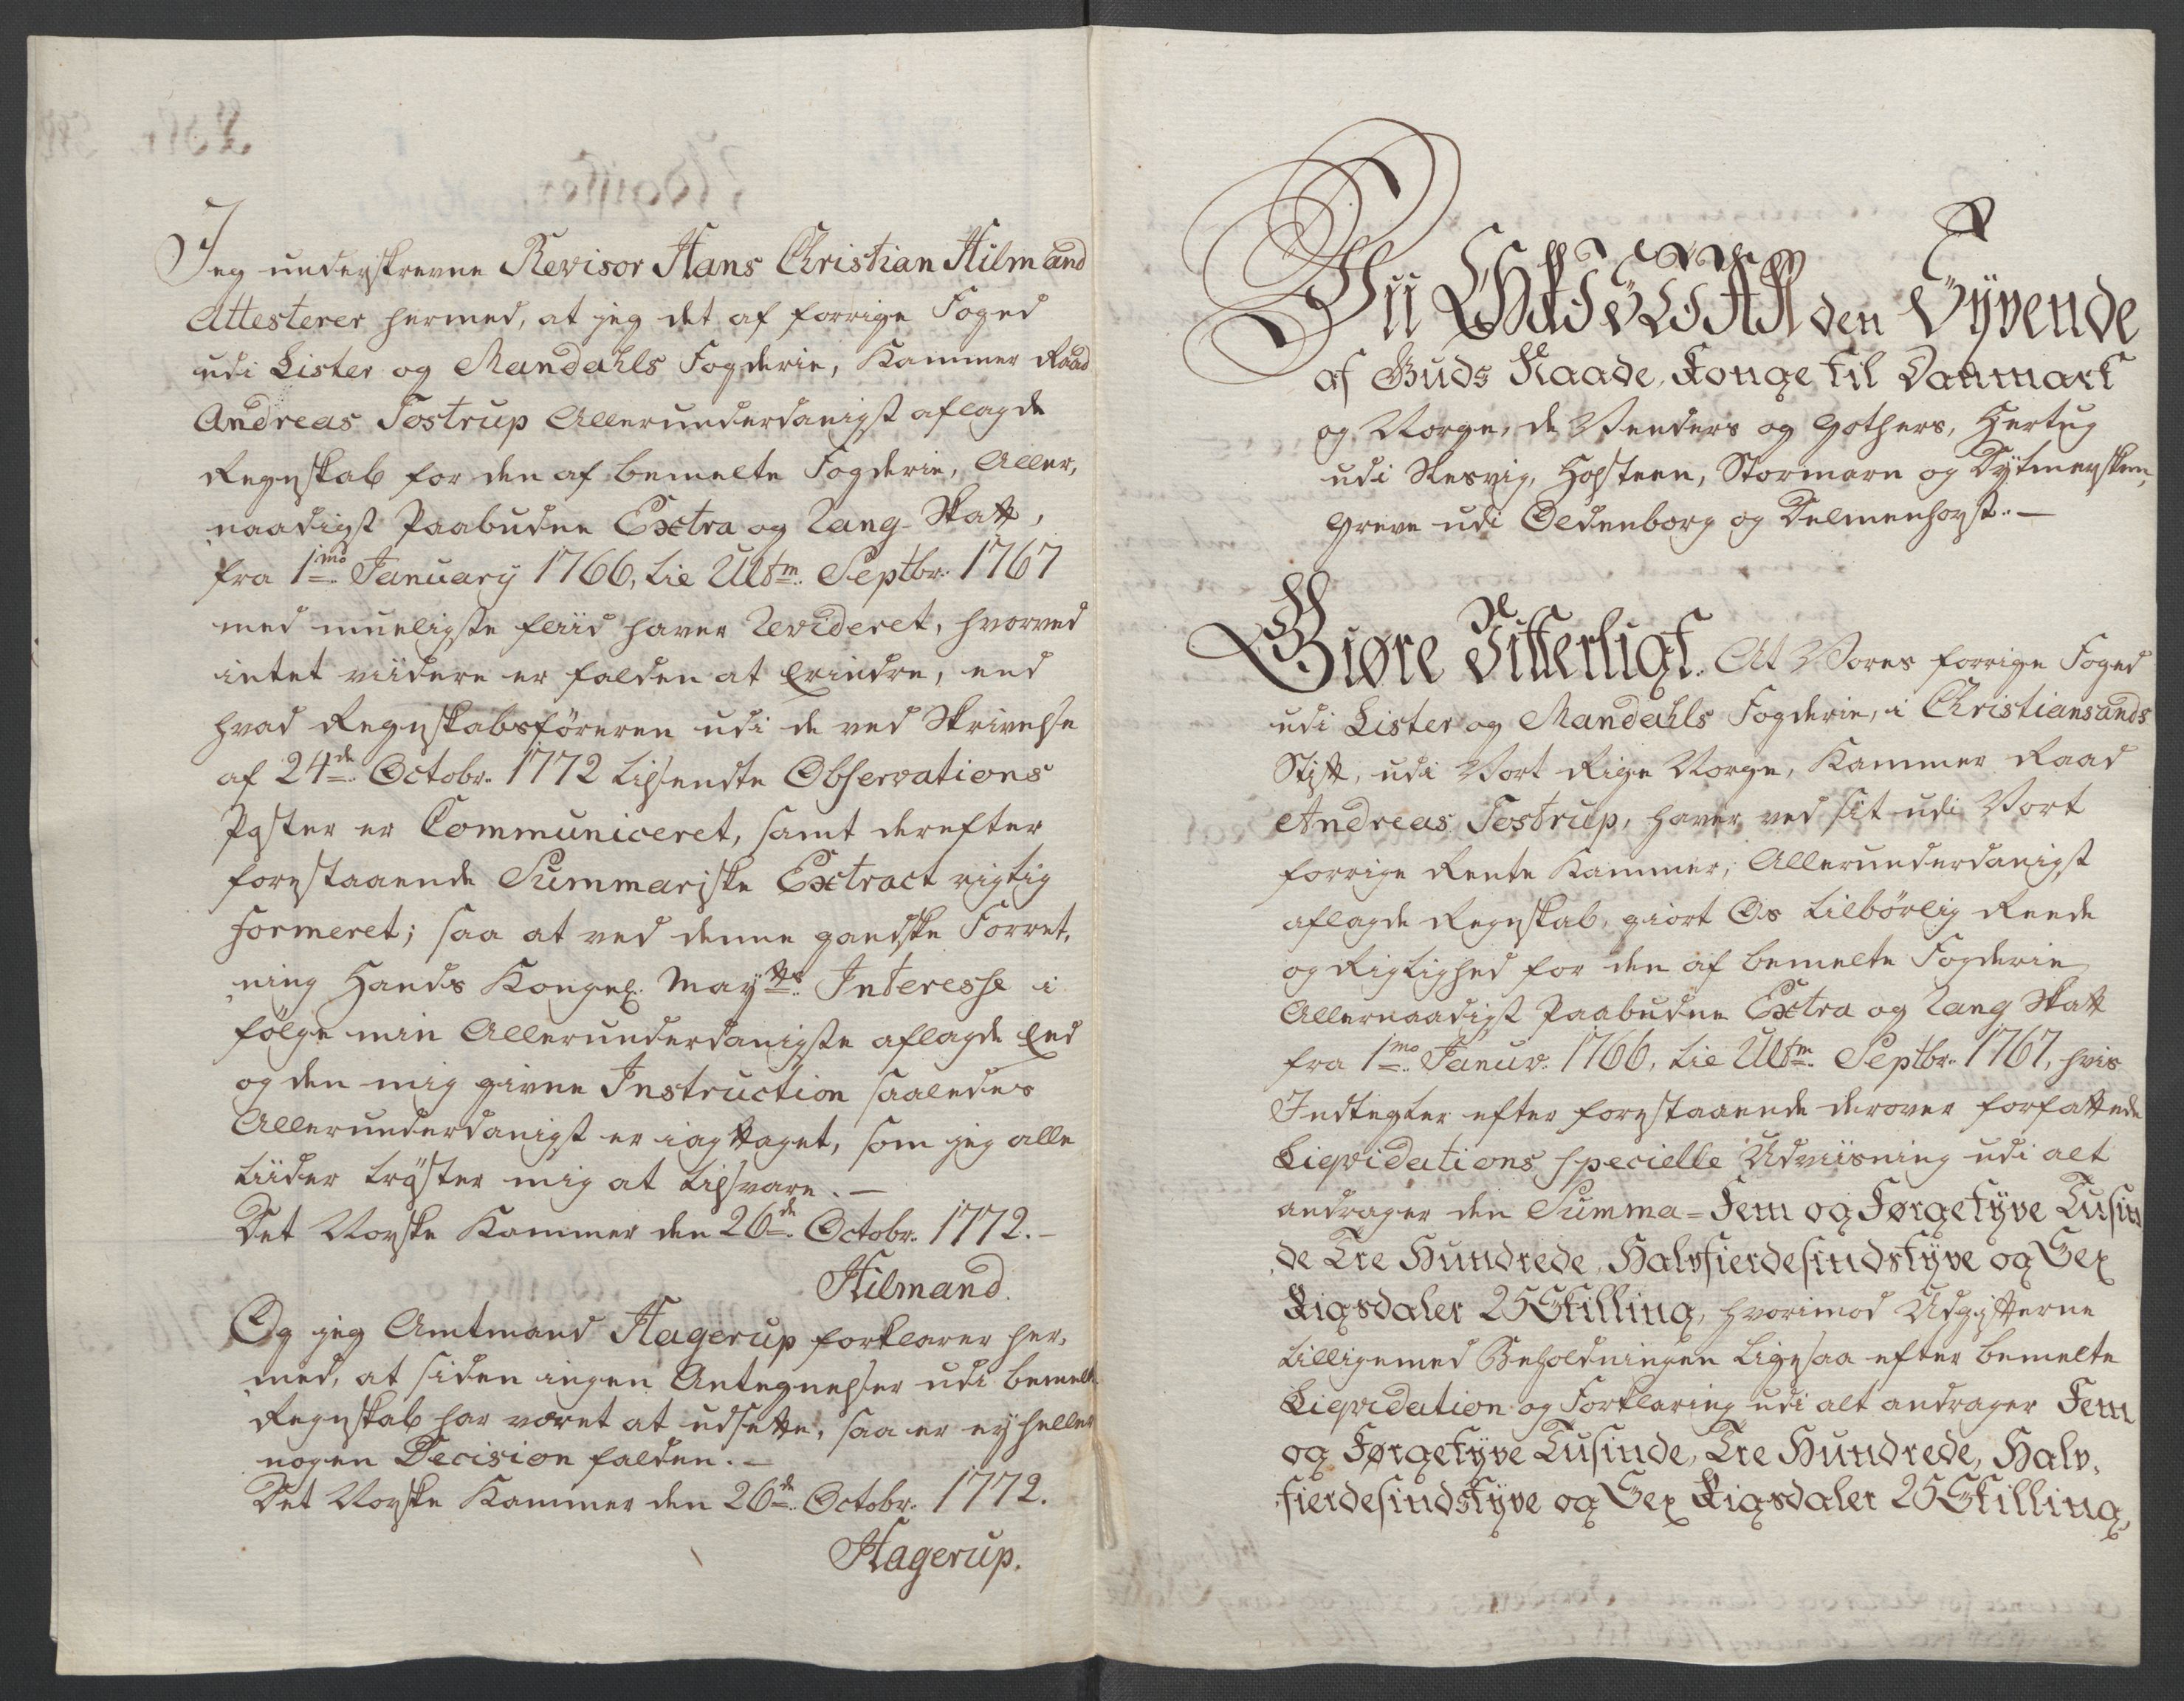 Jeg underskrevne Revisor Hans Christian Hilmand
Attesterer hermed, at jeg det af forrige Foged
udi Lister og Mandahls Fogderie, Kammer Raad
Andreas Tostrup Allerunderdanigst aflagde
Regnskab for den af bemelte Fogderie, Aller,
naadigst Paabudne Extra og Rang-Skatt,
fra 1mo January 1766, til Ultm. Septbr. 1767
med mueligste fliid haver Revideret, hvorved
intet viidere er falden at Erindre, end
hvad Regnskabsføreren udi de ved Skrivelse
af 24de Octobr. 1772 tilsendte Observations
Poster er Communiceret, samt derefter
forestaaende Summariske Extract rigtig
formeret; saa at ved denne gandske Forret,
ning Hands Kongel. Mayts. Interesse i
følge min Allerunderdanigste aflagde Eed
og den mig givne Instruction saaledes
Allerunderdanigst er iagttaget, som jeg alle
tiider trøster mig at tilsvare.—
Det Norske Kammer den 26de Octobr. 1772.—
Hilmand.
Og jeg Amtmand Hagerup forklarer her,
med, at siden ingen Antegnelser udi bemelte
Regnskab har været at udsette, saa er ey heller
nogen Decision falden.—
Det Norske Kammer den 26de Octobr. 1772.
Hagerup.
Vii CHRISTIAN den Syvende
af Guds Naade, Konge til Danmark
og Norge, de Venders og Gothers, Hertug
udi Slesvig, Holsteen, Stormarn og Dytmersken,
Greve udi Oldenborg og Delmenhorst.—
Giøre Vitterligt. At Vores forrige Foged
udi Lister og Mandahls Fogderie, i Christiansands
Stift, udi Vort Rige Norge, Kammer Raad
Andreas Tostrup, haver ved sit udi Vort
forrige Rente Kammer, Allerunderdanigst
aflagde Regnskab, giort Os tilbørlig Reede
og Rigtighed for den af bemelte Fogderie
Allernaadigst Paabudne Extra og Rang Skatt
fra 1mo Januar. 1766, til Ultm. Septbr. 1767, hvis
Indtegter efter forestaaende derover forfattede
Liqvidations specielle Udviisning udi alt
andrager den Summa = Fem og Førgetyve Tusin
de Tre Hundrede, Halvfierdesindstyve og Sex
Rigsdaler 25 Skilling, hvorimod Udgifterne
tilligemed Beholdningen ligesaa efter bemelte
Liqvidation og Forklaring udi alt andrager Fem
og Førgetyve Tusinde, Tre Hundrede, Halv,
fierdesindstyve og Sex Rigsdaler 25 Skilling,